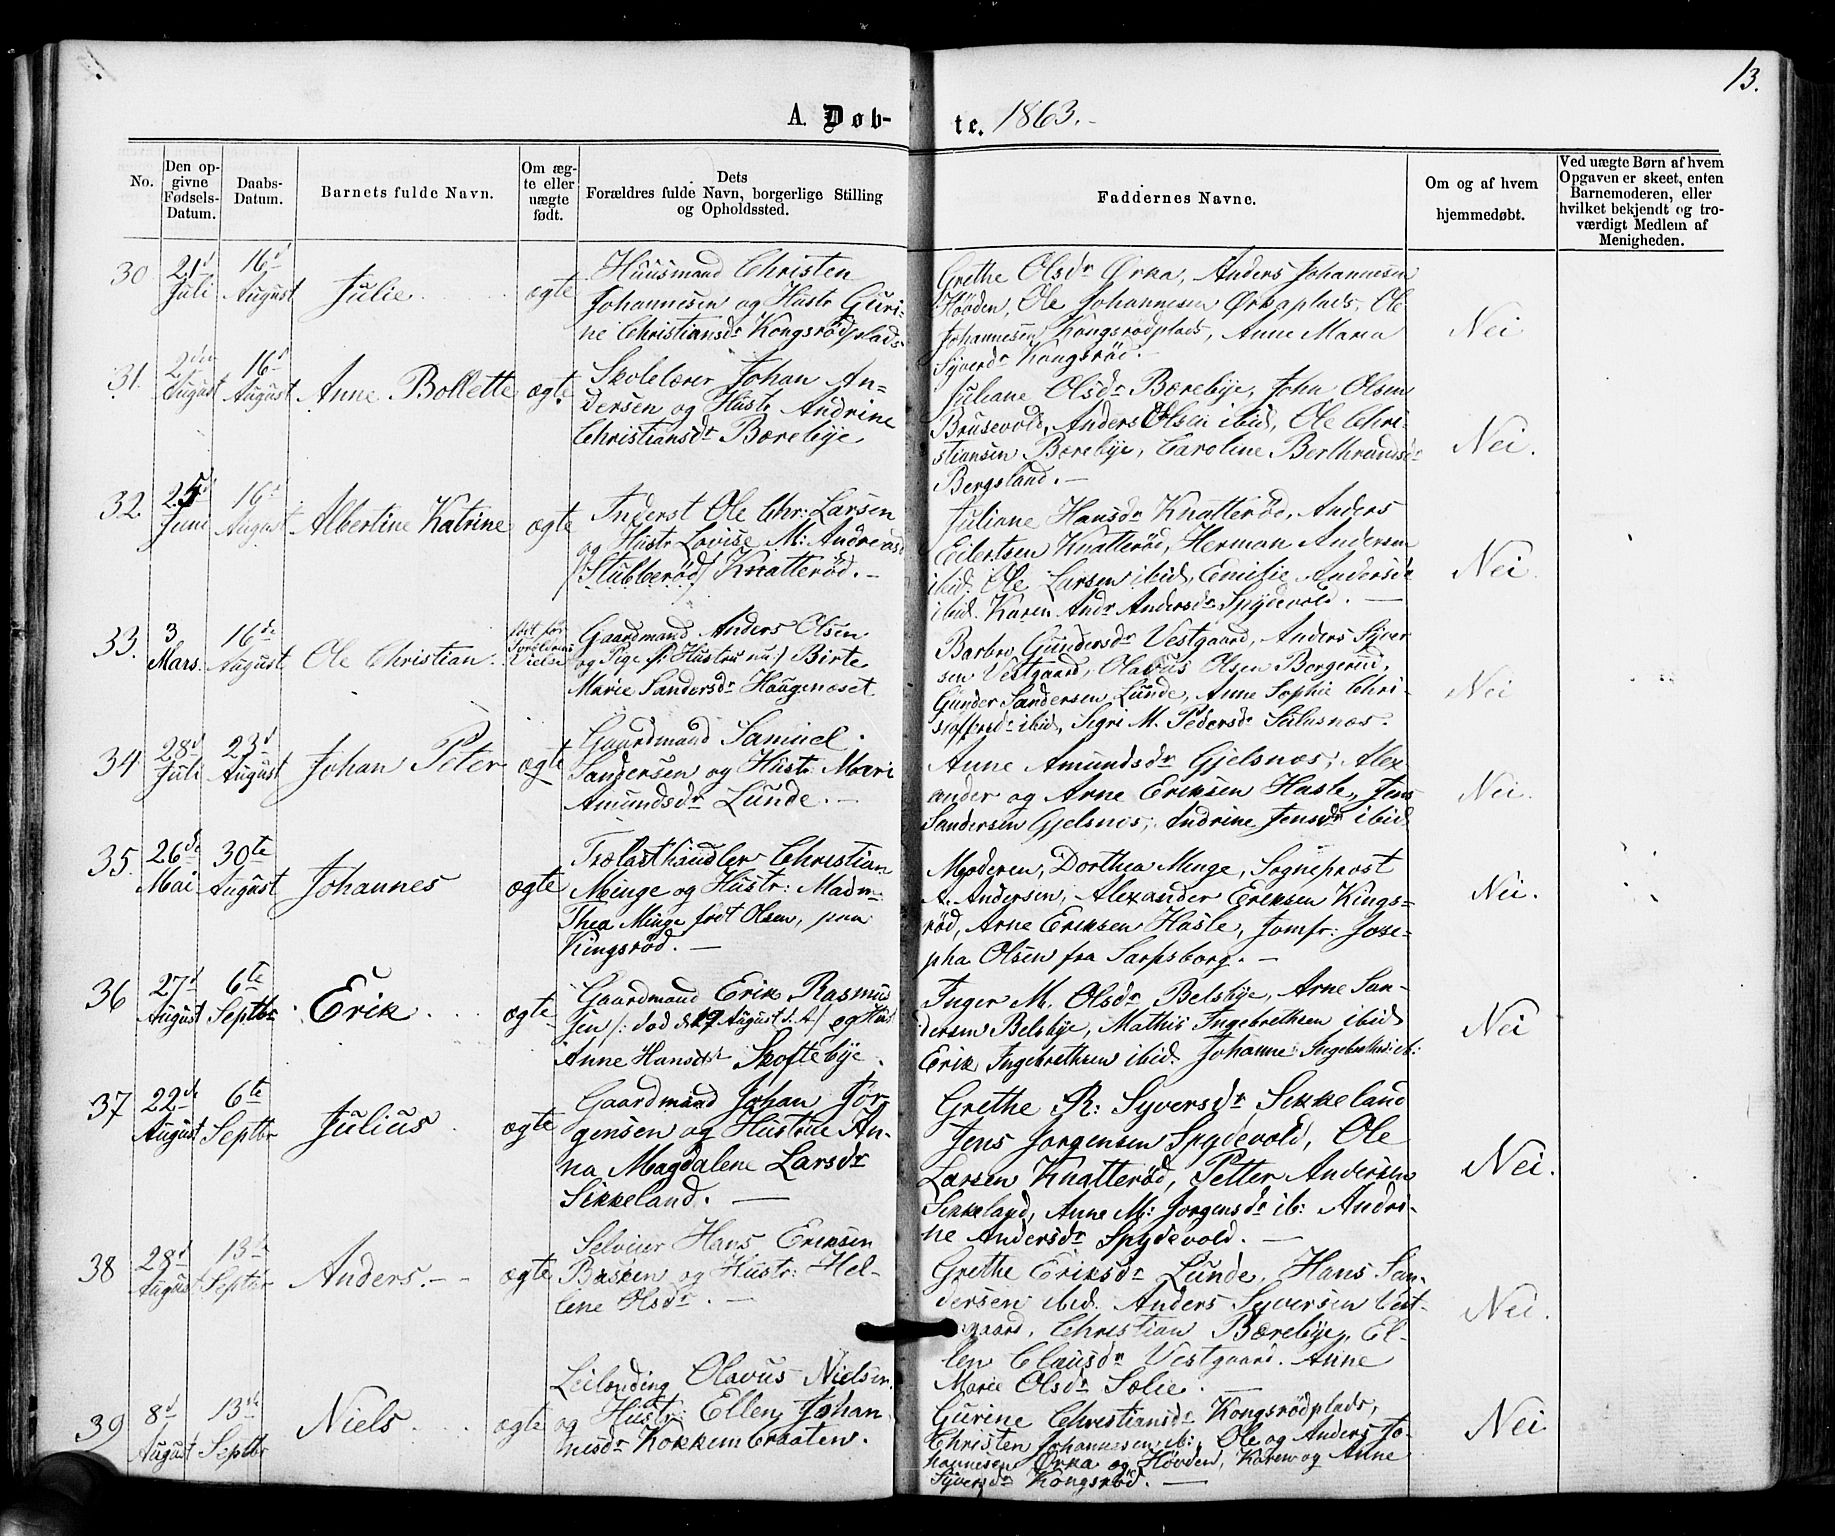 13.
A. Døb-te. 1863.
No.
Den op-
givne
Fødsels-
Datum.
Daabs-
Datum.
Barnets fulde Navn.
Om æg-
te eller
uægte
født.
Dets
Forældres fulde Navn, borgerlige Stilling
og Opholdssted.
Faddernes Navne.
Om og af hvem
hjemmedøbt.
Ved uægte Børn af hvem
Opgaven er skeet, enten
Barnemoderen, eller
hvilket bekjendt og tro-
værdigt Medlem af
Menigheden.
30
21d
Juli
16d
August
Julie
ægte
Huusmand Christen
Johannesen og Hustr Guri-
ne Christiansdr Kongsrødplads
Grethe Olsdr Ørka, Anders Johannesen
Høvden, Ole Johannesen Ørkaplads, Ole
Johannesen Kongsrødplads, Anne Maria
Syversdr Kongsrød.
Nei
31.
2den
August
16d
August
Anne Bollette
ægte
Skolelærer Johan An-
dersen og Hustr Andrine
Christiansdr Bærebye
Juliane Olsdr Bærebye, John Olsen
Brusevold, Anders Olsen ibid, Ole Chri-
stiansen Bærebye, Caroline Berthrandsdr
Bergsland.
Nei.
32.
25d
Juni
16d
August
Albertine Katrine
ægte
Inderst Ole Chr: Larsen
og Hustr Lovise M: Andreasd
/Stubberød/ Knatterød.
Juliane Hansdr Knatterød, Anders
Eilertsen Knatterød, Herman Andersen
ibid. Ole Larsen ibid, Emilie Andersdr
ibid. Karen Andr Andersdr Spydevold.
Nei
33.
3
Mars.
16de
August
Ole Christian.
født før
Forældrenes
Vielse
Gaardmand Anders Olsen
og Pige /: Hustru nu :/ Birte
Marie Sandersdr Haugenæset
Barbro Gundersdr Vestgaard, Anders Syver
sen Vestgaard, Olavus Olsen Borgerud,
Gunder Sandersen Lunde, Anne Sophie Chri-
stoffersdr ibid, Sigri M. Pedersdr
Nei
34
28d
Juli
23d
August
Johan Peter
ægte
Gaardmand Samuel
Sandersen og Hustr Mari
Amundsdr Lunde.
Anne Amundsdr Gjelsnæs, Alex
ander og Arne Eriksen Hasle, Jens
Sandersen Gjelsnes, Andrine Jensdr ibid
Nei.
35.
26de
Mai
30te
August
Johannes
ægte
Trælasthandler Christian
Minge og Hustr: Madm
Thea Minge født Olsen, paa
Kingsrød.
Moderen, Dorthea Minge, Sogneprost
A. Andersen, Alexander Eriksen Kings=
rød, Arne Eriksen Hasle, Jomfr: Jose-
pha Olsen fra Sarpsborg.
Nei.
36
27d
August
6te
Septbr
Erik
ægte
Gaardmand Erik Rasmus
sen /: død d 17 August d. A./ og Hust
Anne Hansdr Skoftebye.
Inger M. Olsdr Belsbye, Arne San-
dersen Belsbye, Mathis Ingebrethsen ibid
Erik Ingebrethsen ibid. Johanne Ingebrethsd ib:
Nei
37
22de
August
6te
Septbr
Julius
ægte
Gaardmand Johan Jør-
gensen og Hustrue An-
na Magdalene Larsdr
Sikkeland.
Grethe R: Syversdr Sikkeland
Jens Jorgensen Spydevold, Ole
Larsen Knatterød, Petter Andersen
Sikkeland, Anne M: Jorgensdr ib: Andri-
ne Andersdr Spydevold.
Nei.
38
28d
August
13de
Septbr
Anders.
ægte
Selveier Hans Eriksen
Basken og Hustr: Hel-
lene Olsdr.
Grethe Eriksdr Lunde, Hans San-
dersen ibid. Anders Syversen Vest-
gaard, Christian Bærebye, El-
len Clausdr Vestgaard. Anne
Marie Olsdr Sælie.
Nei.
39
8d
August
13de
Septbr
Niels.
ægte
Leilænding Olavus Nielsen
og Hustr: Ellen Johan
nesdr Kokkembraaten.
Gurine Christiansdr Kongsrødplads,
Christen Johannesen ib:, Ole og Anders Jo-
hannesen Ørka og Høvden, Karen og Anne
Syversdr Kongsrød.
Nei